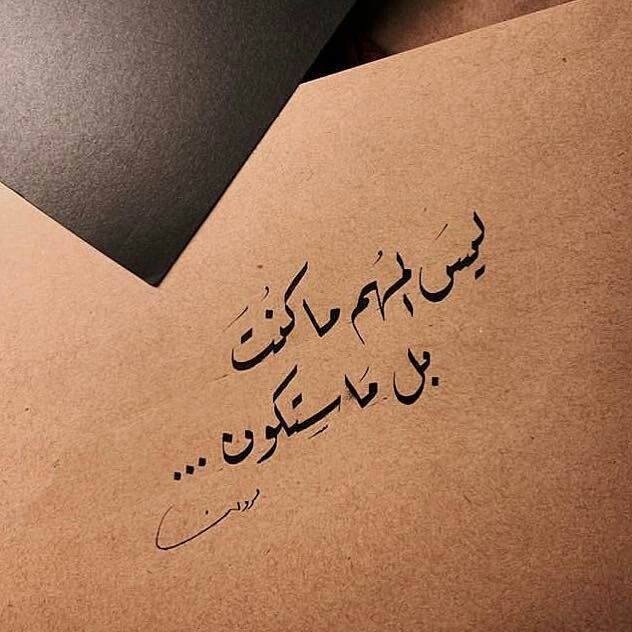 ليسَ المهُم ما كنُتَ
بل مَا ستِكون ...